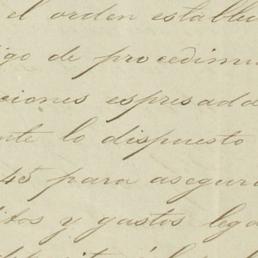 el orden estable
igo de procedimi
ciones espresada
nte lo dispuesto
45 para asegura
itos y gastos lega